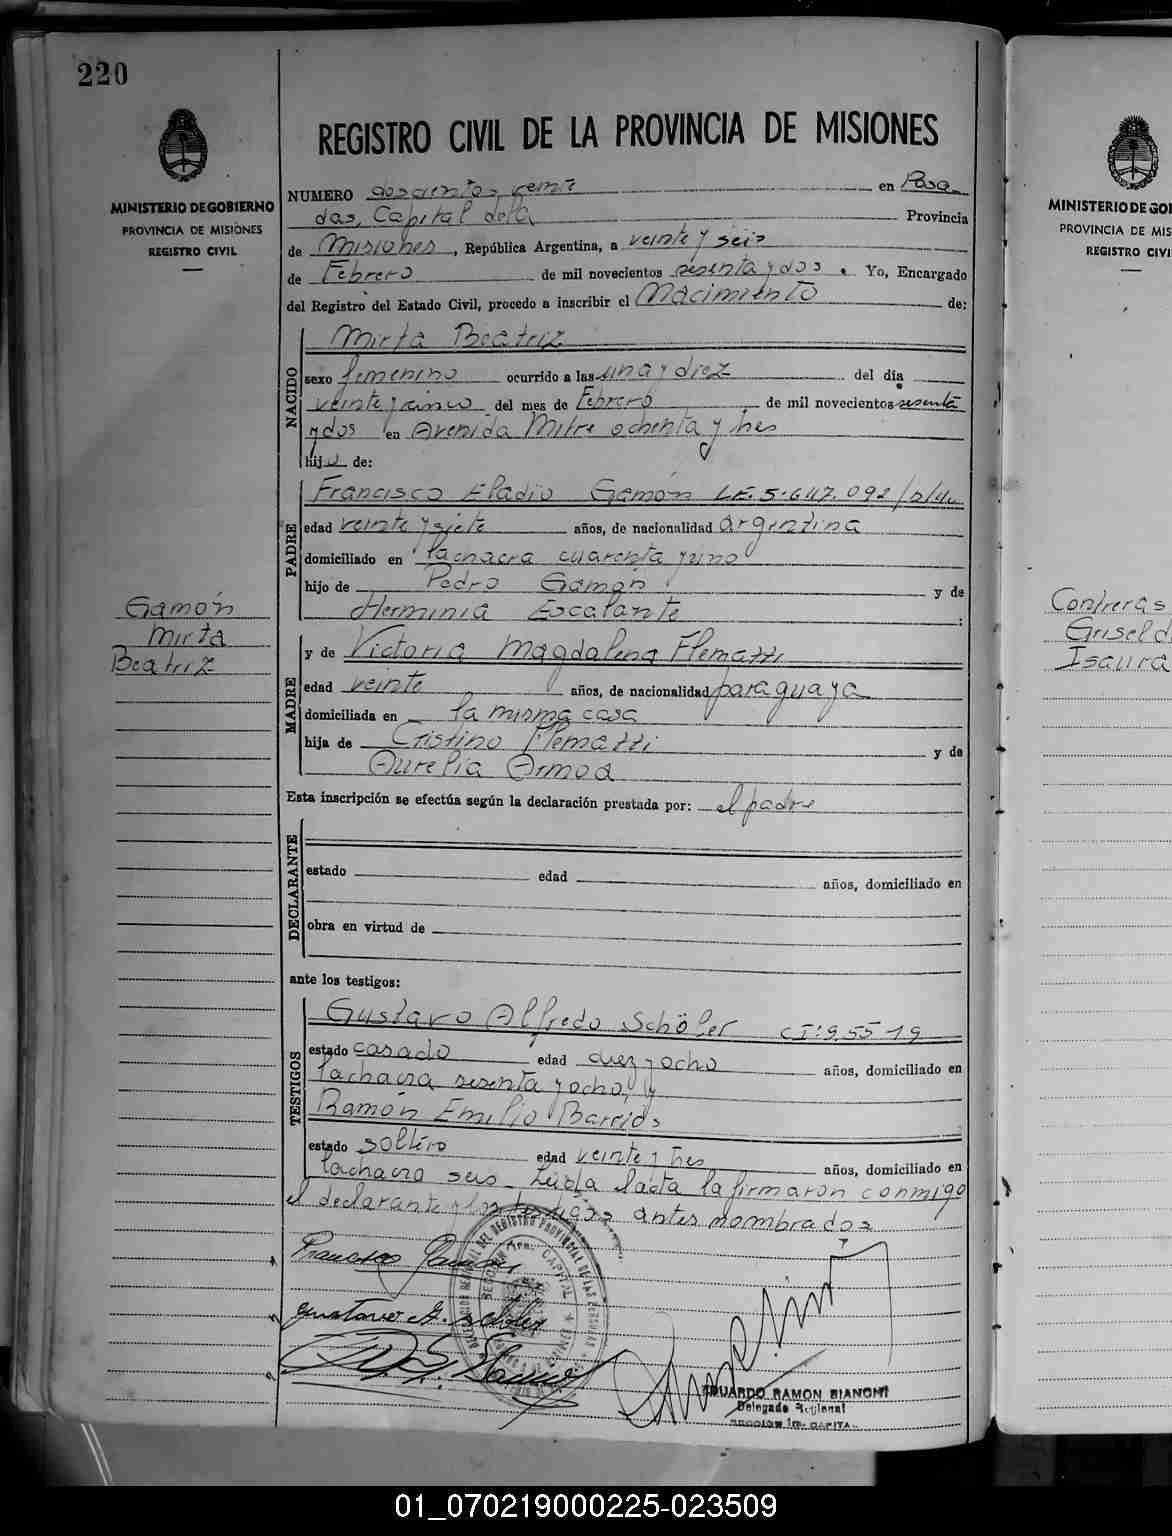 220
MINISTERIO DE GOBIERNO
PROVINCIA DE MISIONES
REGISTRO CIVIL
Gamón
Mirta
Beatriz
REGISTRO CIVIL DE LA PROVINCIA DE MISIONES
NUMERO doscientos veinte en Posa
das, Capital de la Provincia
de Misiones, República Argentina, a veinte y seis
de Febrero de mil novecientos sesenta y dos. Yo, Encargado
del Registro del Estado Civil, procedo a inscribir el Nacimiento de:
NACIDO
Mirta Beatriz
sexo femenino ocurrido a las una y diez del día
veinte y cinco del mes de Febrero de mil novecientos sesenta
y dos en Avenida Mitre ochenta y tres
hija de:
PADRE
Francisco Eladio Gamón L.E. 5.647.092
edad veinte y siete años, de nacionalidad argentina
domiciliado en la chacra cuarenta y uno
hijo de Pedro Gamón y de
Herminia Escalante :
MADRE
y de Victoria Magdalena Flematti
edad veinte años, de nacionalidad paraguaya
domiciliada en la misma casa
hija de Cristino Flematti y de
Aurelia Armoa
Esta inscripción se efectúa según la declaración prestada por: el padre
DECLARANTE
estado edad años, domiciliado en
obra en virtud de
ante los testigos:
TESTIGOS
Gustavo Alfredo Schöler CI: 9.55 19
estado casado edad diez y ocho años, domiciliado en
la chacra sesenta y ocho, y
Ramón Emilio Barrios
estado soltero edad veinte y tres años, domiciliado en
la chacra seis - Leída el acta la firmaron conmigo
el declarante y los testigos antes nombrados
Francisco Gamón
Gustavo A. Schöler
EDUARDO RAMON BIANCHI
Delegado Regional
SECCION 1ra. CAPITAL
MINISTERIO DE GO
PROVINCIA DE MIS
REGISTRO CIVI
Contreras
Griselda
Isaura
01_070219000225-023509